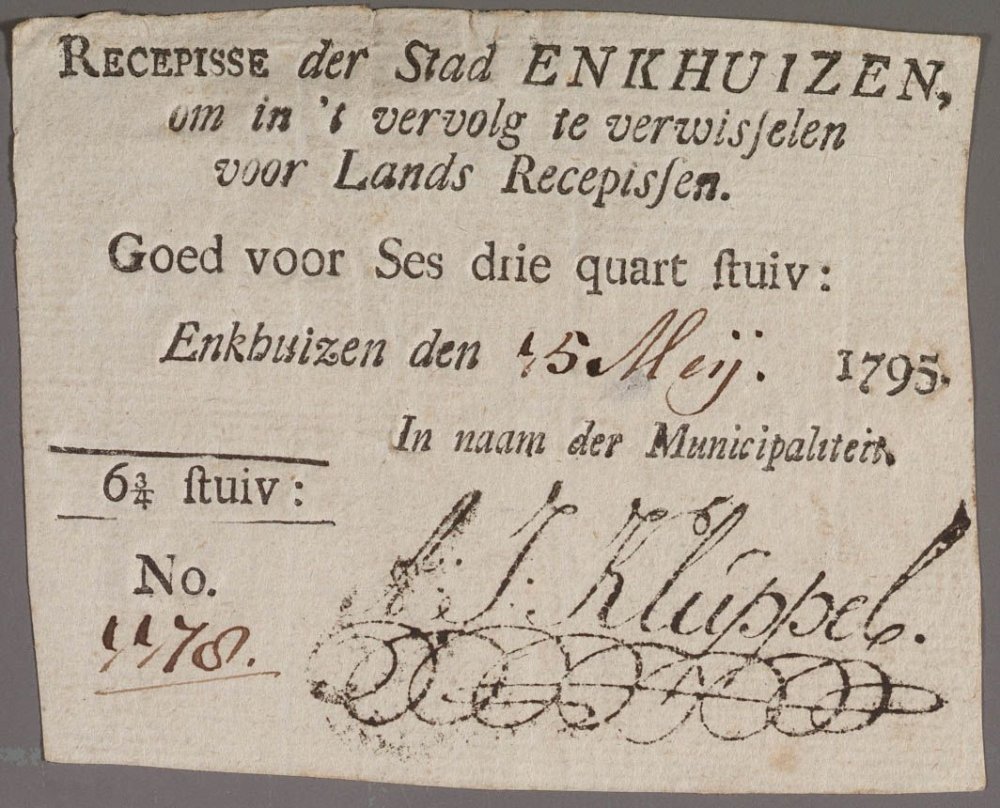 RECEPISSE der Stad ENKHUIZEN,
om in 't vervolg te verwisſelen
voor Lands Recepisſen.
Goed voor Ses drie quart ſtuiv:
Enkhuizen den 15 Meij. 1795.
In naam der Municipaliteit.
6¾ ſtuiv:
No.
1178.
A: J: Klúppel.